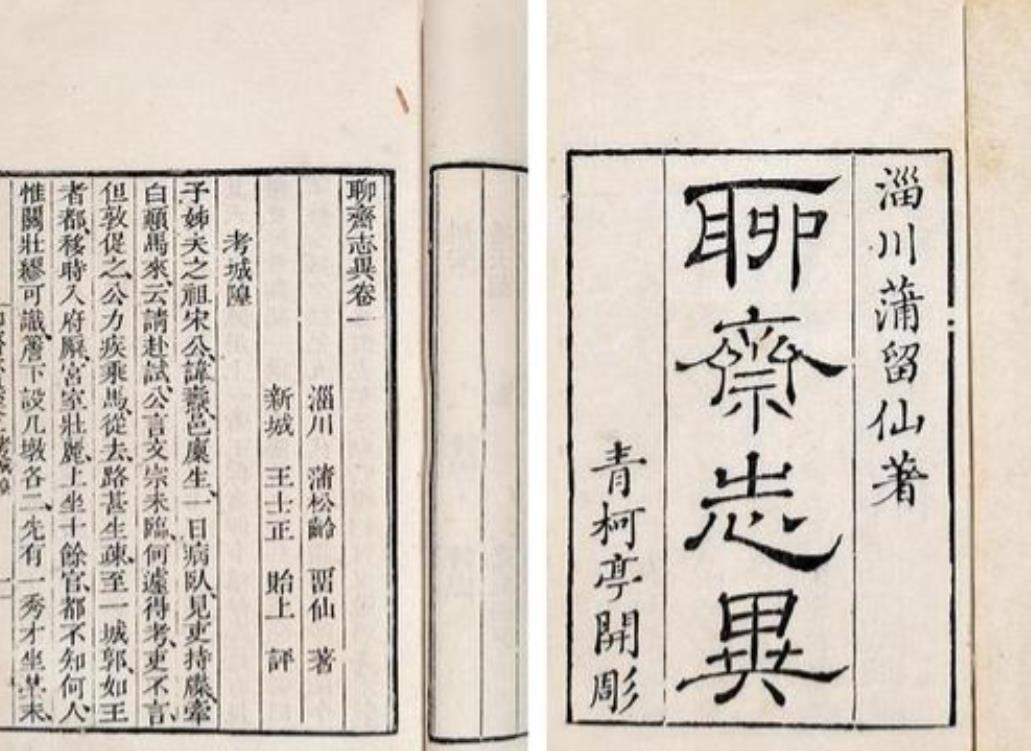 淄川蒲留仙著
聊齋志異
青柯亭開彫
聊齋志異卷一
淄川 蒲松齡 畱仙 著
新城 王士正 貽上 評
考城隍
予姊夫之祖宋公、諱燾、邑廩生、一日病臥、見吏持牒、牽
白顛馬來、云請赴試、公言文宗未臨、何遽得考、吏不言、
但敦促之、公力疾乘馬、從去、路甚生疎、至一城郭、如王
者都、移時入府廨、宮室壯麗、上坐十餘官、都不知何人、
惟關壯繆可識、簷下設几墩各二、先有一秀才坐其末、